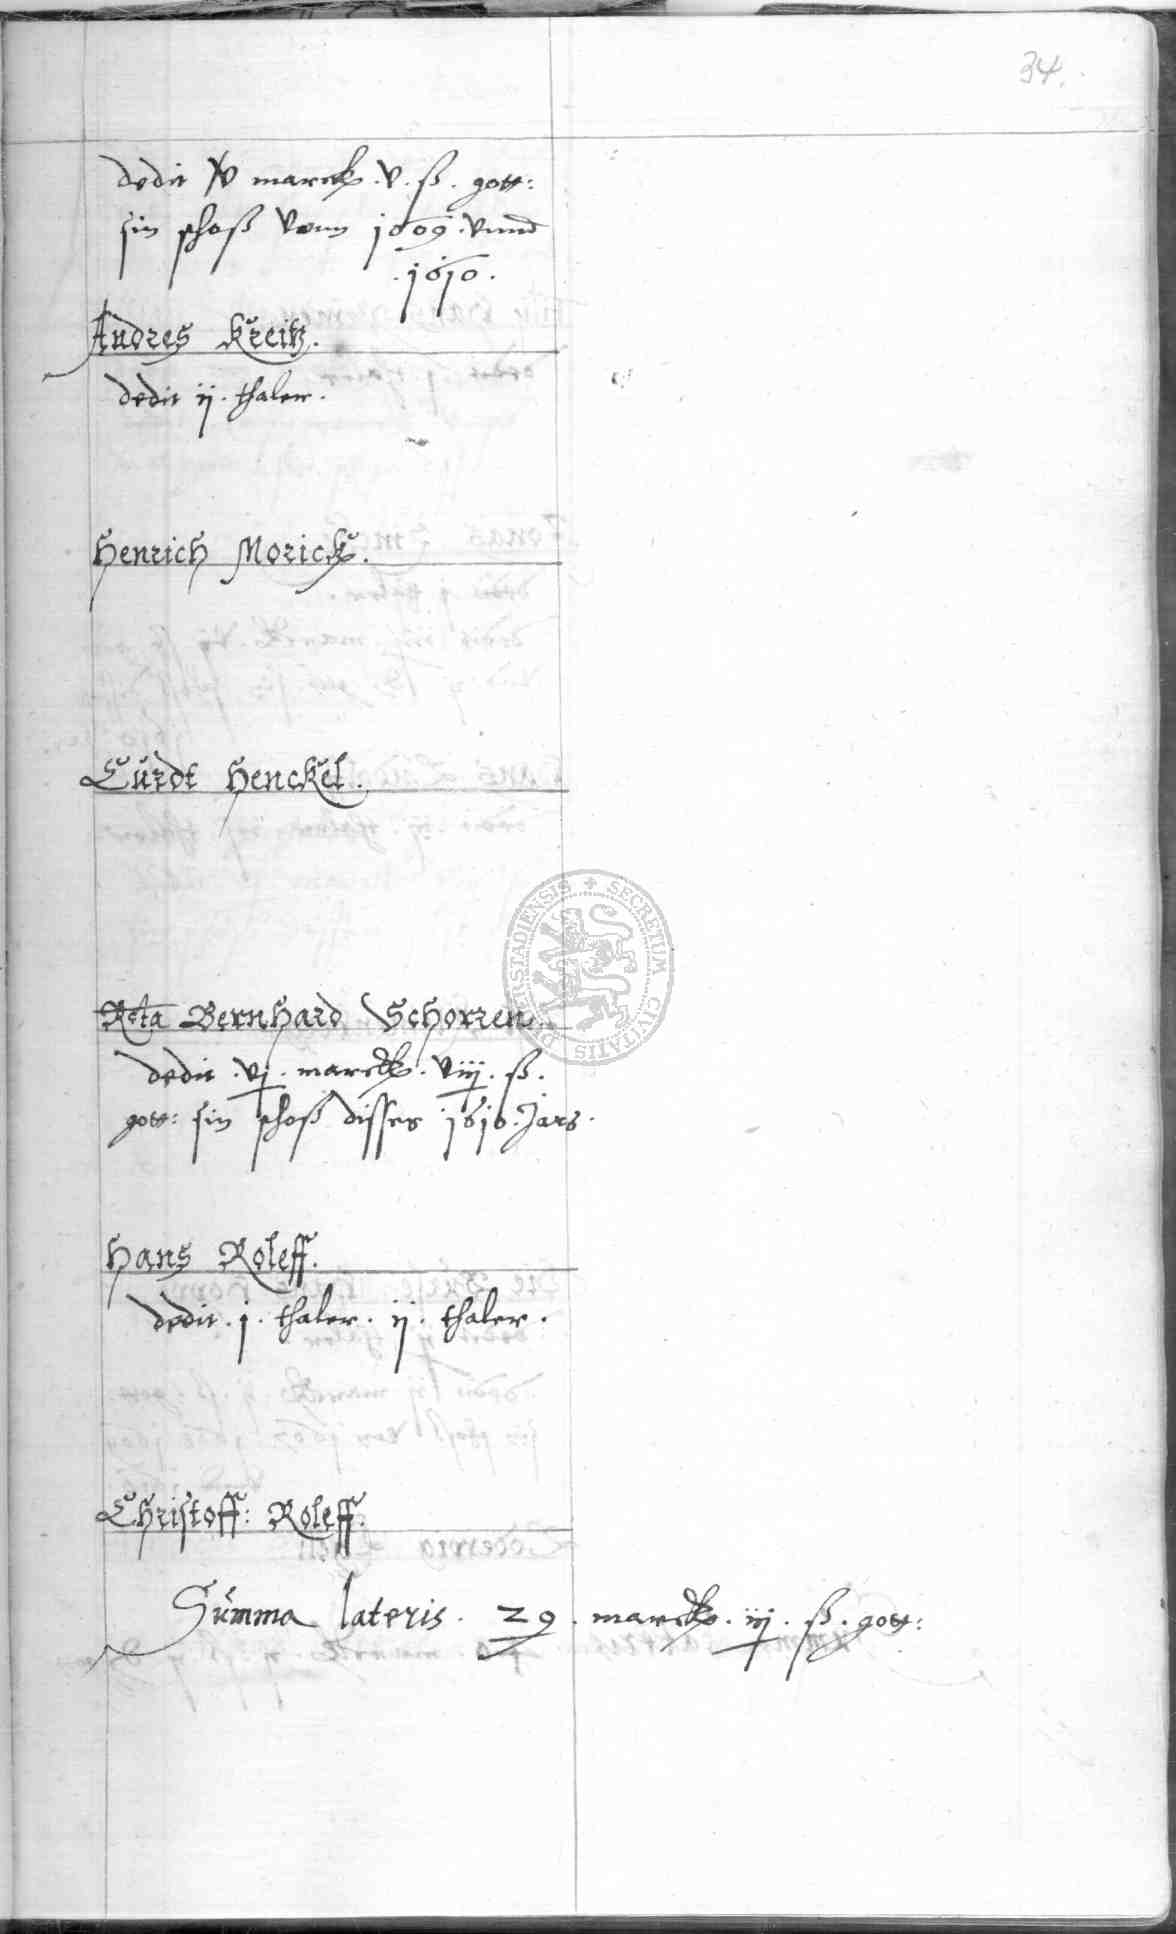 34.
dedit v marck. v. ß. gott:
sin schoß vonn 1609. vnnd
.1610.
Andres Kreitz.
dedit ij. thaler.
Henrich Morick.
Curdt Henckel.
Rcta Bernhard Schorren.
dedit. vj. marck. viij. ß.
gott: sin schoß disses 1610. Jars.
Hans Roleff.
dedit. j. thaler. ij. thaler.
Christoff: Roleff.
Summa lateris. 29. marck. iij. ß. gott:
SECRETUM CIVITATIS DUDERSTADIENSIS